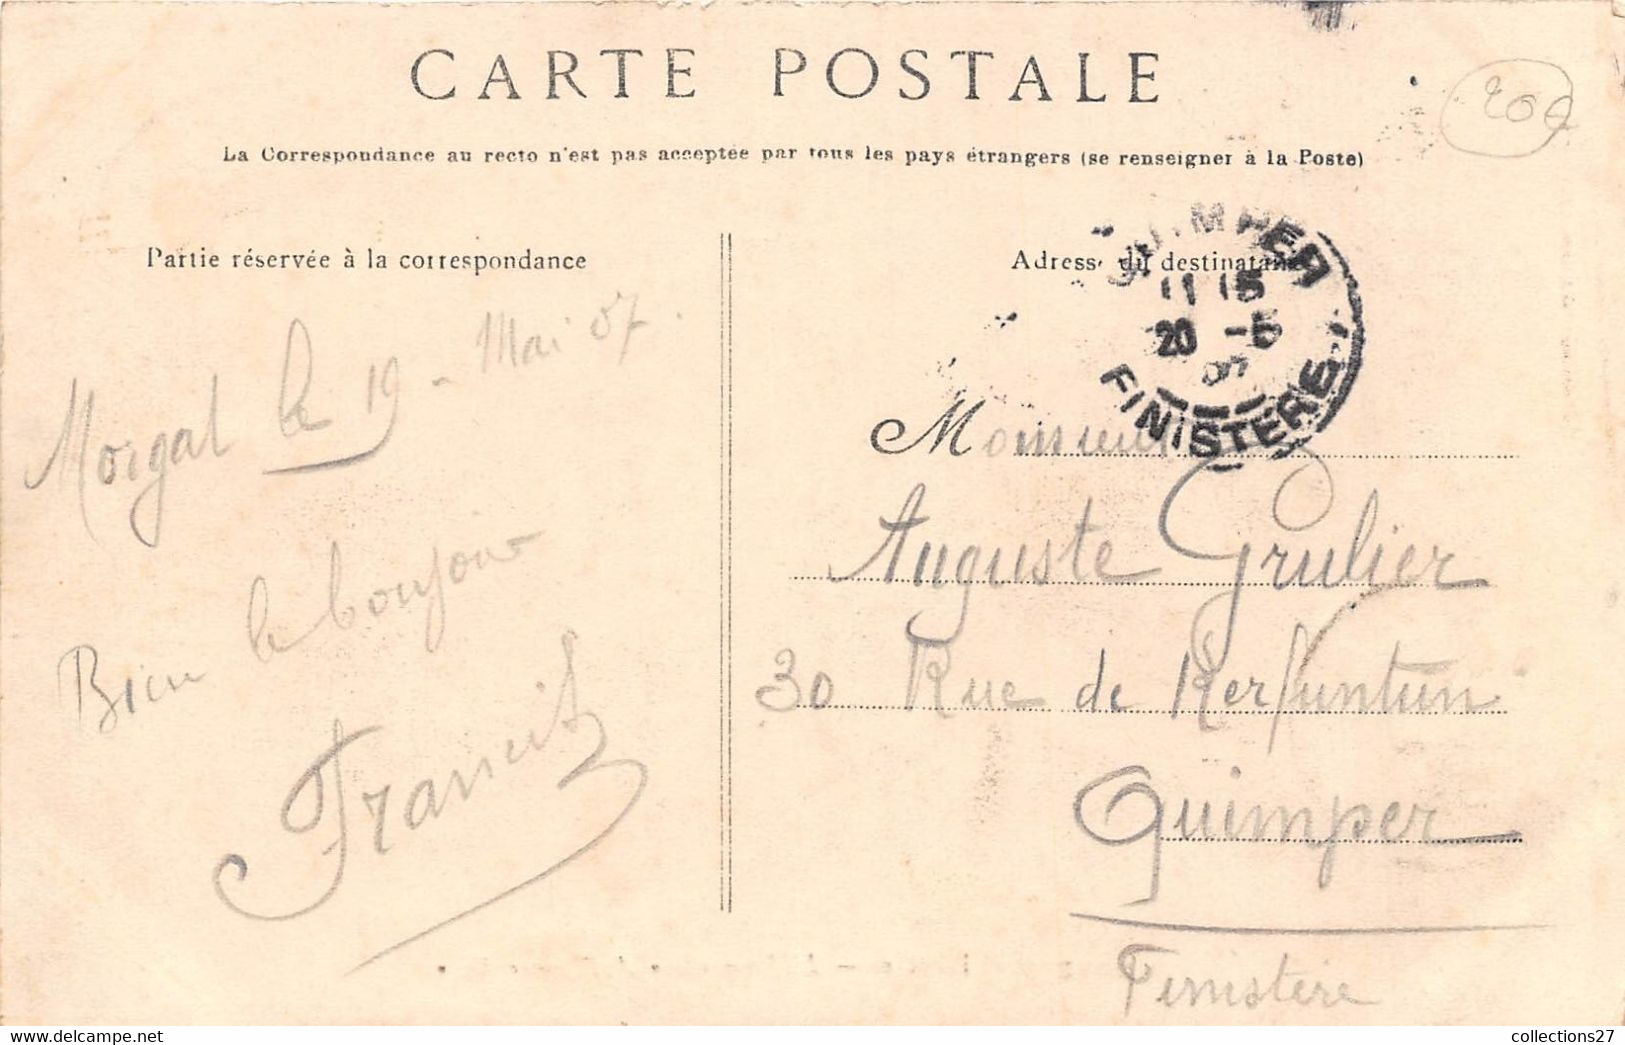 CARTE POSTALE
20€
La Correspondance au recto n'est pas acceptée par tous les pays étrangers (se renseigner à la Poste)
Partie réservée à la correspondance
Adresse du destinataire
QUIMPER
11 15
20 -5
07
FINISTERE
Morgat le 19 - Mai 07.
Bien le bonjour
Francis
Monsieur
Auguste Grulier
30 Rue de Kerfuntun
Quimper
Finistère
collections27